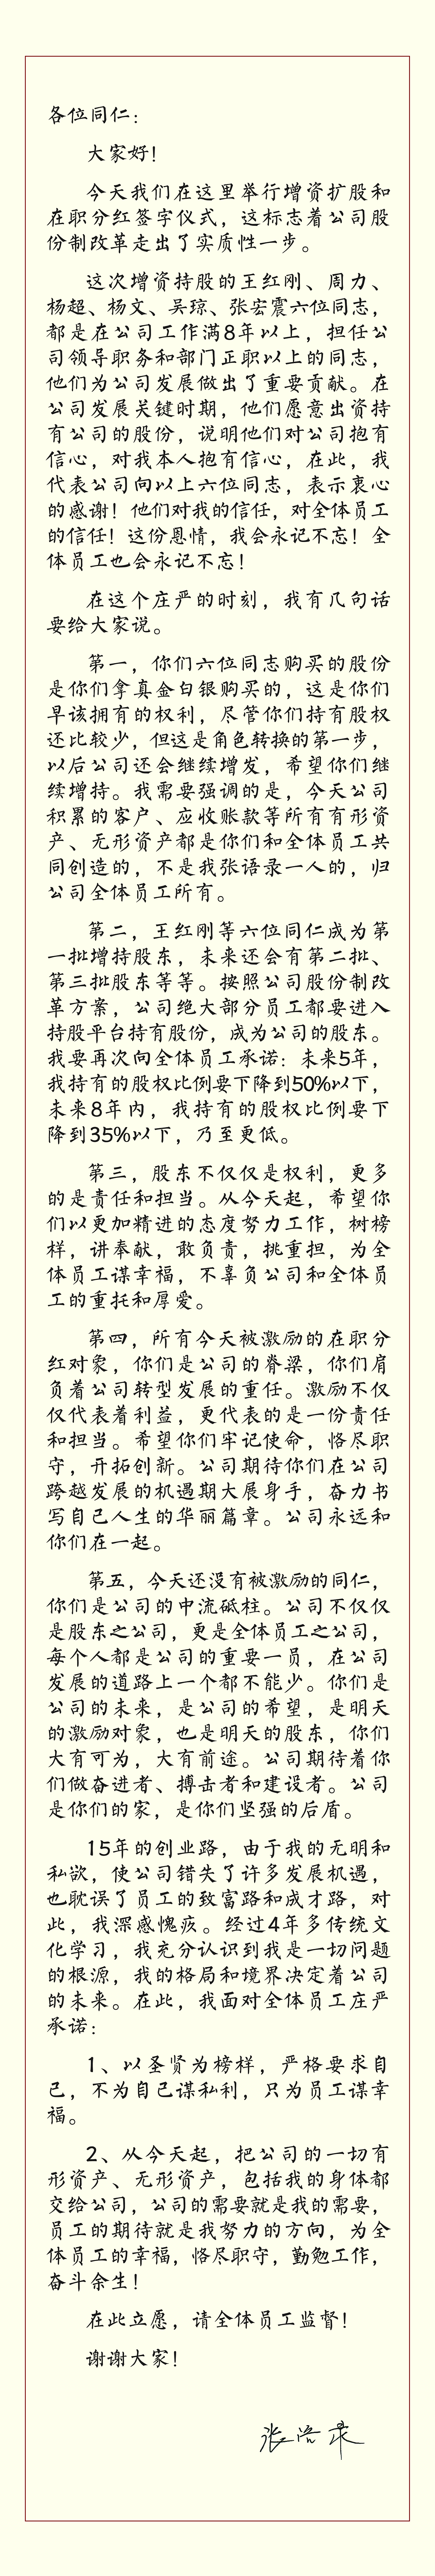 各位同仁：
大家好！
今天我们在这里举行增资扩股和
在职分红签字仪式，这标志着公司股
份制改革走出了实质性一步。
这次增资持股的王红刚、周力、
杨超、杨文、吴琼、张宏震六位同志，
都是在公司工作满8年以上，担任公
司领导职务和部门正职以上的同志，
他们为公司发展做出了重要贡献。在
公司发展关键时期，他们愿意出资持
有公司的股份，说明他们对公司抱有
信心，对我本人抱有信心，在此，我
代表公司向以上六位同志，表示衷心
的感谢！他们对我的信任，对全体员工
的信任！这份恩情，我会永记不忘！全
体员工也会永记不忘！
在这个庄严的时刻，我有几句话
要给大家说。
第一，你们六位同志购买的股份
是你们拿真金白银购买的，这是你们
早该拥有的权利，尽管你们持有股权
还比较少，但这是角色转换的第一步，
以后公司还会继续增发，希望你们继
续增持。我需要强调的是，今天公司
积累的客户、应收账款等所有有形资
产、无形资产都是你们和全体员工共
同创造的，不是我张语录一人的，归
公司全体员工所有。
第二，王红刚等六位同仁成为第
一批增持股东，未来还会有第二批、
第三批股东等等。按照公司股份制改
革方案，公司绝大部分员工都要进入
持股平台持有股份，成为公司的股东。
我要再次向全体员工承诺：未来5年，
我持有的股权比例要下降到50%以下，
未来8年内，我持有的股权比例要下
降到35%以下，乃至更低。
第三，股东不仅仅是权利，更多
的是责任和担当。从今天起，希望你
们以更加精进的态度努力工作，树榜
样，讲奉献，敢负责，挑重担，为全
体员工谋幸福，不辜负公司和全体员
工的重托和厚爱。
第四，所有今天被激励的在职分
红对象，你们是公司的脊梁，你们肩
负着公司转型发展的重任。激励不仅
仅代表着利益，更代表的是一份责任
和担当。希望你们牢记使命，恪尽职
守，开拓创新。公司期待你们在公司
跨越发展的机遇期大展身手，奋力书
写自己人生的华丽篇章。公司永远和
你们在一起。
第五，今天还没有被激励的同仁，
你们是公司的中流砥柱。公司不仅仅
是股东之公司，更是全体员工之公司，
每个人都是公司的重要一员，在公司
发展的道路上一个都不能少。你们是
公司的未来，是公司的希望，是明天
的激励对象，也是明天的股东，你们
大有可为，大有前途。公司期待着你
们做奋进者、搏击者和建设者。公司
是你们的家，是你们坚强的后盾。
15年的创业路，由于我的无明和
私欲，使公司错失了许多发展机遇，
也耽误了员工的致富路和成才路，对
此，我深感愧疚。经过4年多传统文
化学习，我充分认识到我是一切问题
的根源，我的格局和境界决定着公司
的未来。在此，我面对全体员工庄严
承诺：
1、以圣贤为榜样，严格要求自
己，不为自己谋私利，只为员工谋幸
福。
2、从今天起，把公司的一切有
形资产、无形资产，包括我的身体都
交给公司，公司的需要就是我的需要，
员工的期待就是我努力的方向，为全
体员工的幸福，恪尽职守，勤勉工作，
奋斗余生！
在此立愿，请全体员工监督！
谢谢大家！
张语录